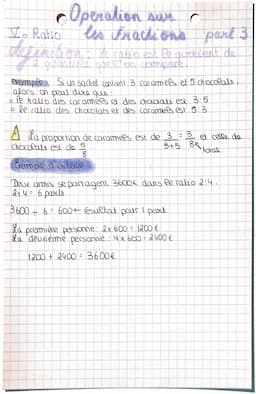 Opération sur
V. Ratio les fractions part 3
Définition : le ratio est le quotient de
2 quantités qu'on compare.
exemple : Si un sachet contient 3 caramels et 5 chocolats,
alors on peut dire que :
• le Ratio des caramels et des chocolats est 3:5
• le ratio des chocolats et des caramels est 5:3
! La proportion de caramels est de 3/3+5 = 3/8 et celle de
chocolats est de 5/8 total
Exemple d'calcul :
Deux amis se partagent 3600€ dans le ratio 2:4.
2+4 = 6 parts
3600 ÷ 6 = 600 ← résultat pour 1 part
La première personne : 2 x 600 = 1200€
La deuxième personne : 4 x 600 = 2400€
1200 + 2400 = 3600€